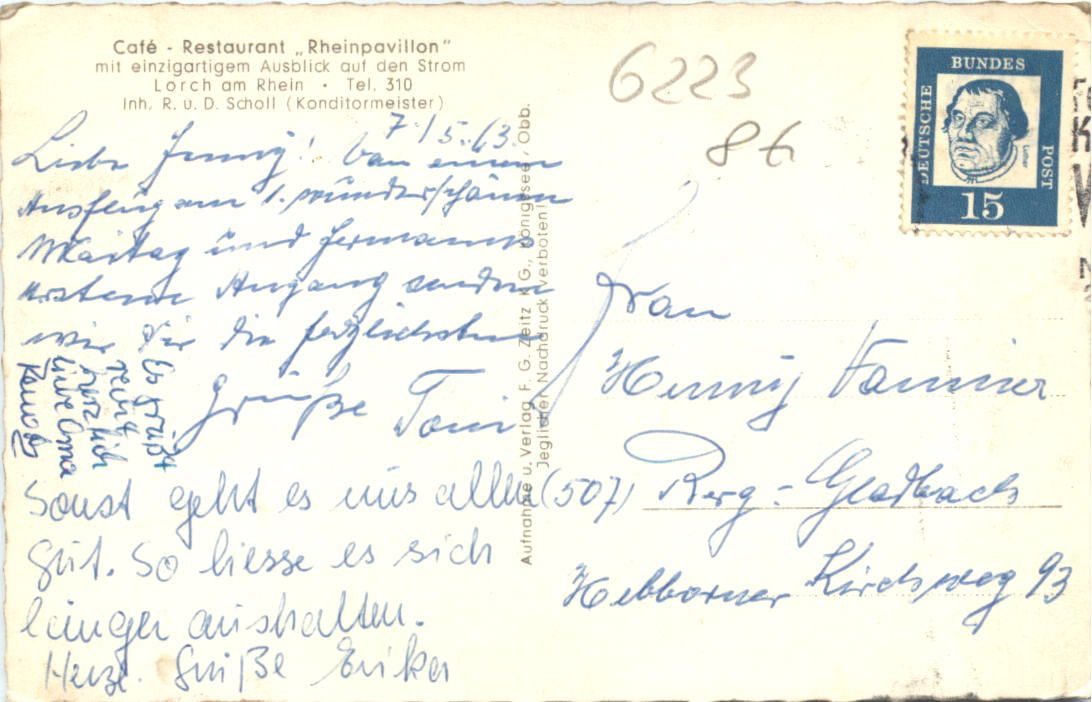 Café - Restaurant „Rheinpavillon"
mit einzigartigem Ausblick auf den Strom
Lorch am Rhein • Tel. 310
Inh. R. u. D. Scholl (Konditormeister)
7.15.63.
Liebe Henny! Von einem
Ausflug am 1. wunderschönen
Maitag und Hermanns
erstem Ausgang senden
wir Dir die herzlichsten
Grüße Toni
Es grüßt
herzlich
liebe Oma
Sonst geht es uns allen
gut. So liesse es sich
länger aushalten.
Herzl. Grüße Erika
Aufnahme u. Verlag F. G. Zeitz K.G., Königssee / Obb.
Jeglicher Nachdruck verboten!
6223
86
DEUTSCHE
BUNDES
POST
Luther
15
Frau
Henny
(507) Berg.-Gladbach
Hebborner Kirchweg 93